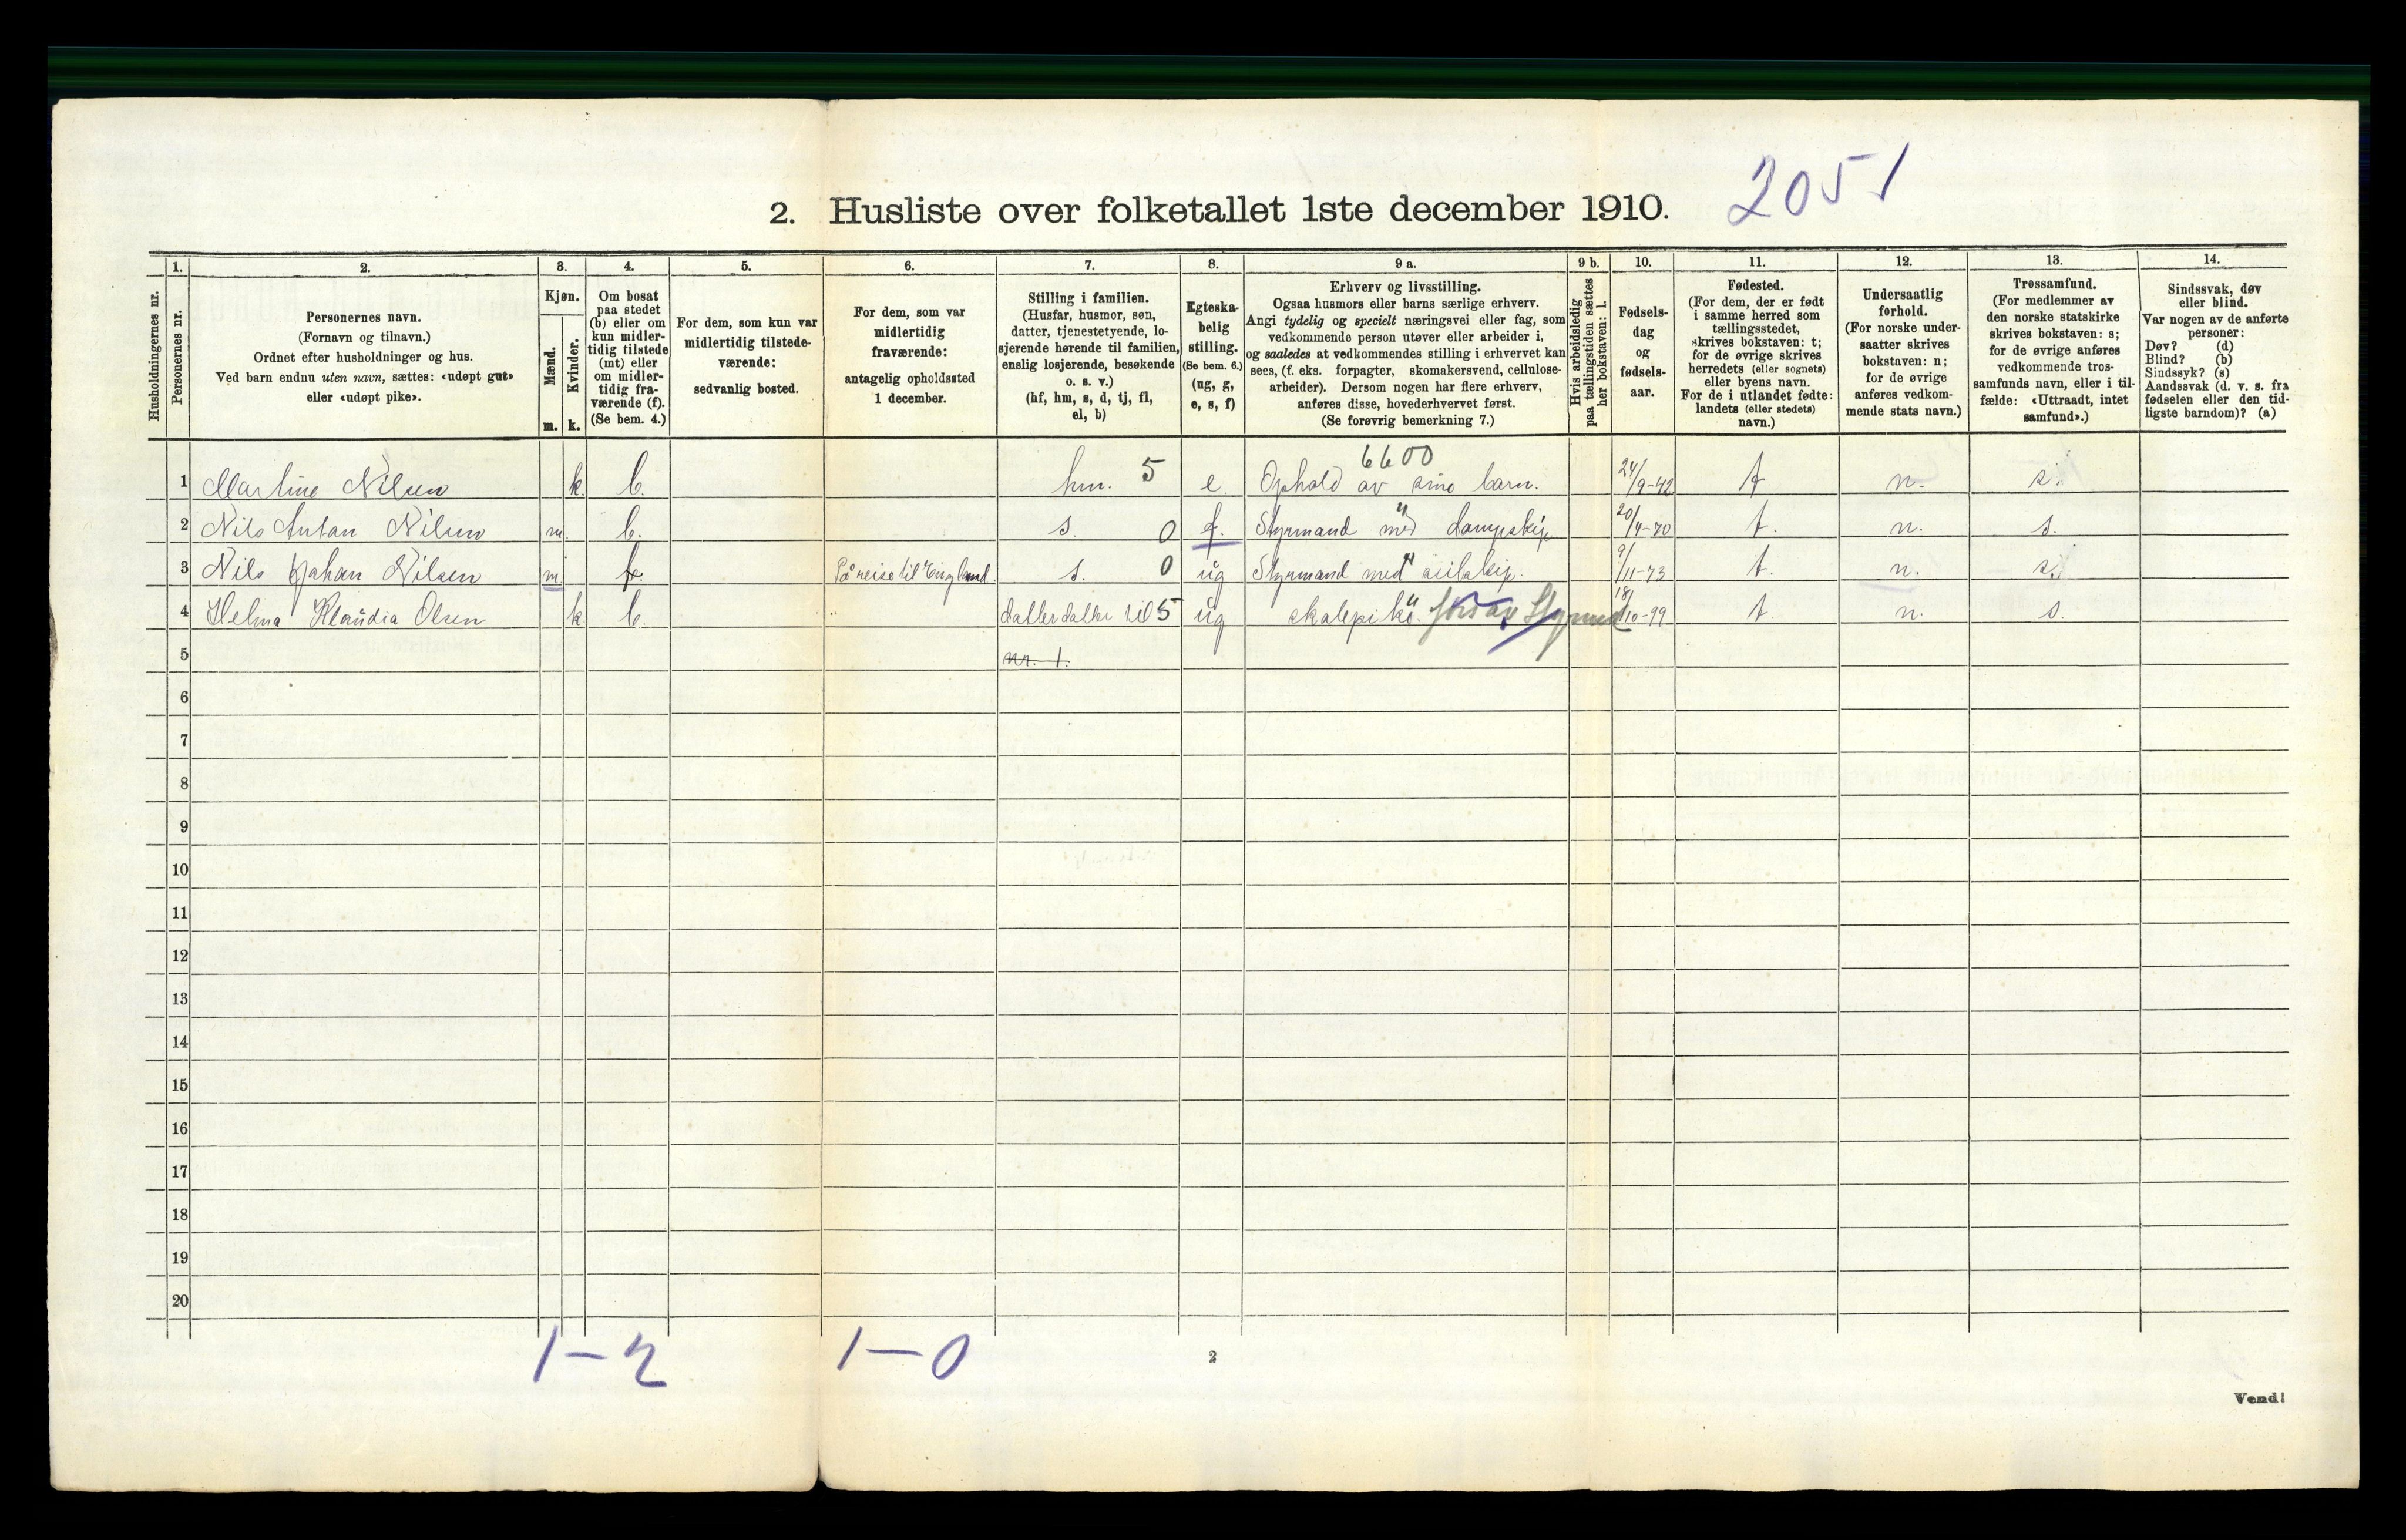 2051
2. Husliste over folketallet 1ste december 1910.
Husholdningernes nr.
1.
Personernes nr.
2.
Personernes navn.
(Fornavn og tilnavn.)
Ordnet efter husholdninger og hus.
Ved barn endnu uten navn, sættes: «udøpt gut»
eller «udøpt pike».
3.
Kjøn.
Mænd.
Kvinder.
m.
k.
4.
Om bosat
paa stedet
(b) eller om
kun midler-
tidig tilstede
(mt) eller
om midler-
tidig fra-
værende (f).
(Se bem. 4.)
5.
For dem, som kun var
midlertidig tilstede-
værende:
sedvanlig bosted.
6.
For dem, som var
midlertidig
fraværende:
antagelig opholdssted
1 december.
7.
Stilling i familien.
(Husfar, husmor, søn,
datter, tjenestetyende, lo-
sjerende hørende til familien,
enslig losjerende, besøkende
o. s. v.)
(hf, hm, s, d, tj, fl,
el, b)
8.
Egteska-
belig
stilling.
(Se bem. 6.)
(ug, g,
e, s, f)
9 a.
Erhverv og livsstilling.
Ogsaa husmors eller barns særlige erhverv.
Angi tydelig og specielt næringsvei eller fag, som
vedkommende person utøver eller arbeider i,
og saaledes at vedkommendes stilling i erhvervet kan
sees, (f. eks. forpagter, skomakersvend, cellulose-
arbeider). Dersom nogen har flere erhverv,
anføres disse, hovederhvervet først.
(Se forøvrig bemerkning 7.)
9 b.
Hvis arbeidsledig
paa tællingstiden sættes
her bokstaven: l.
10.
Fødsels-
dag
og
fødsels-
aar.
11.
Fødested.
(For dem, der er født
i samme herred som
tællingsstedet,
skrives bokstaven: t;
for de øvrige skrives
herredets (eller sognets)
eller byens navn.
For de i utlandet fødte:
landets (eller stedets)
navn.)
12.
Undersaatlig
forhold.
(For norske under-
saatter skrives
bokstaven: n;
for de øvrige
anføres vedkom-
mende stats navn.)
13.
Trossamfund.
(For medlemmer av
den norske statskirke
skrives bokstaven: s;
for de øvrige anføres
vedkommende tros-
samfunds navn, eller i til-
fælde: «Uttraadt, intet
samfund».)
14.
Sindssvak, døv
eller blind.
Var nogen av de anførte
personer:
Døv? (d)
Blind? (b)
Sindssyk? (s)
Aandssvak (d. v. s. fra
fødselen eller den tid-
ligste barndom)? (a)
6600
1 Martine Nilsen k. b. hm. 5 e Ophold av sine barn. 24/9-42 t n. s.
2 Nils Antan Nilsen m. b. s. 0 f. Styrmand med dampskip 20/4-70 t. n. s.
3 Nils Johan Nilsen m f. På reise til England s. 0 ug Styrmand med seilskip. 9/11-73 t. n. s.
4 Helma Klaudia Olsen k b. datterdatter til 5 ug skolepike. fors av Styrmd 18/10-99 t. n. s.
5 nr. 1.
6
7
8
9
10
11
12
13
14
15
16
17
18
19
20
1-2 1-0
2
Vend!